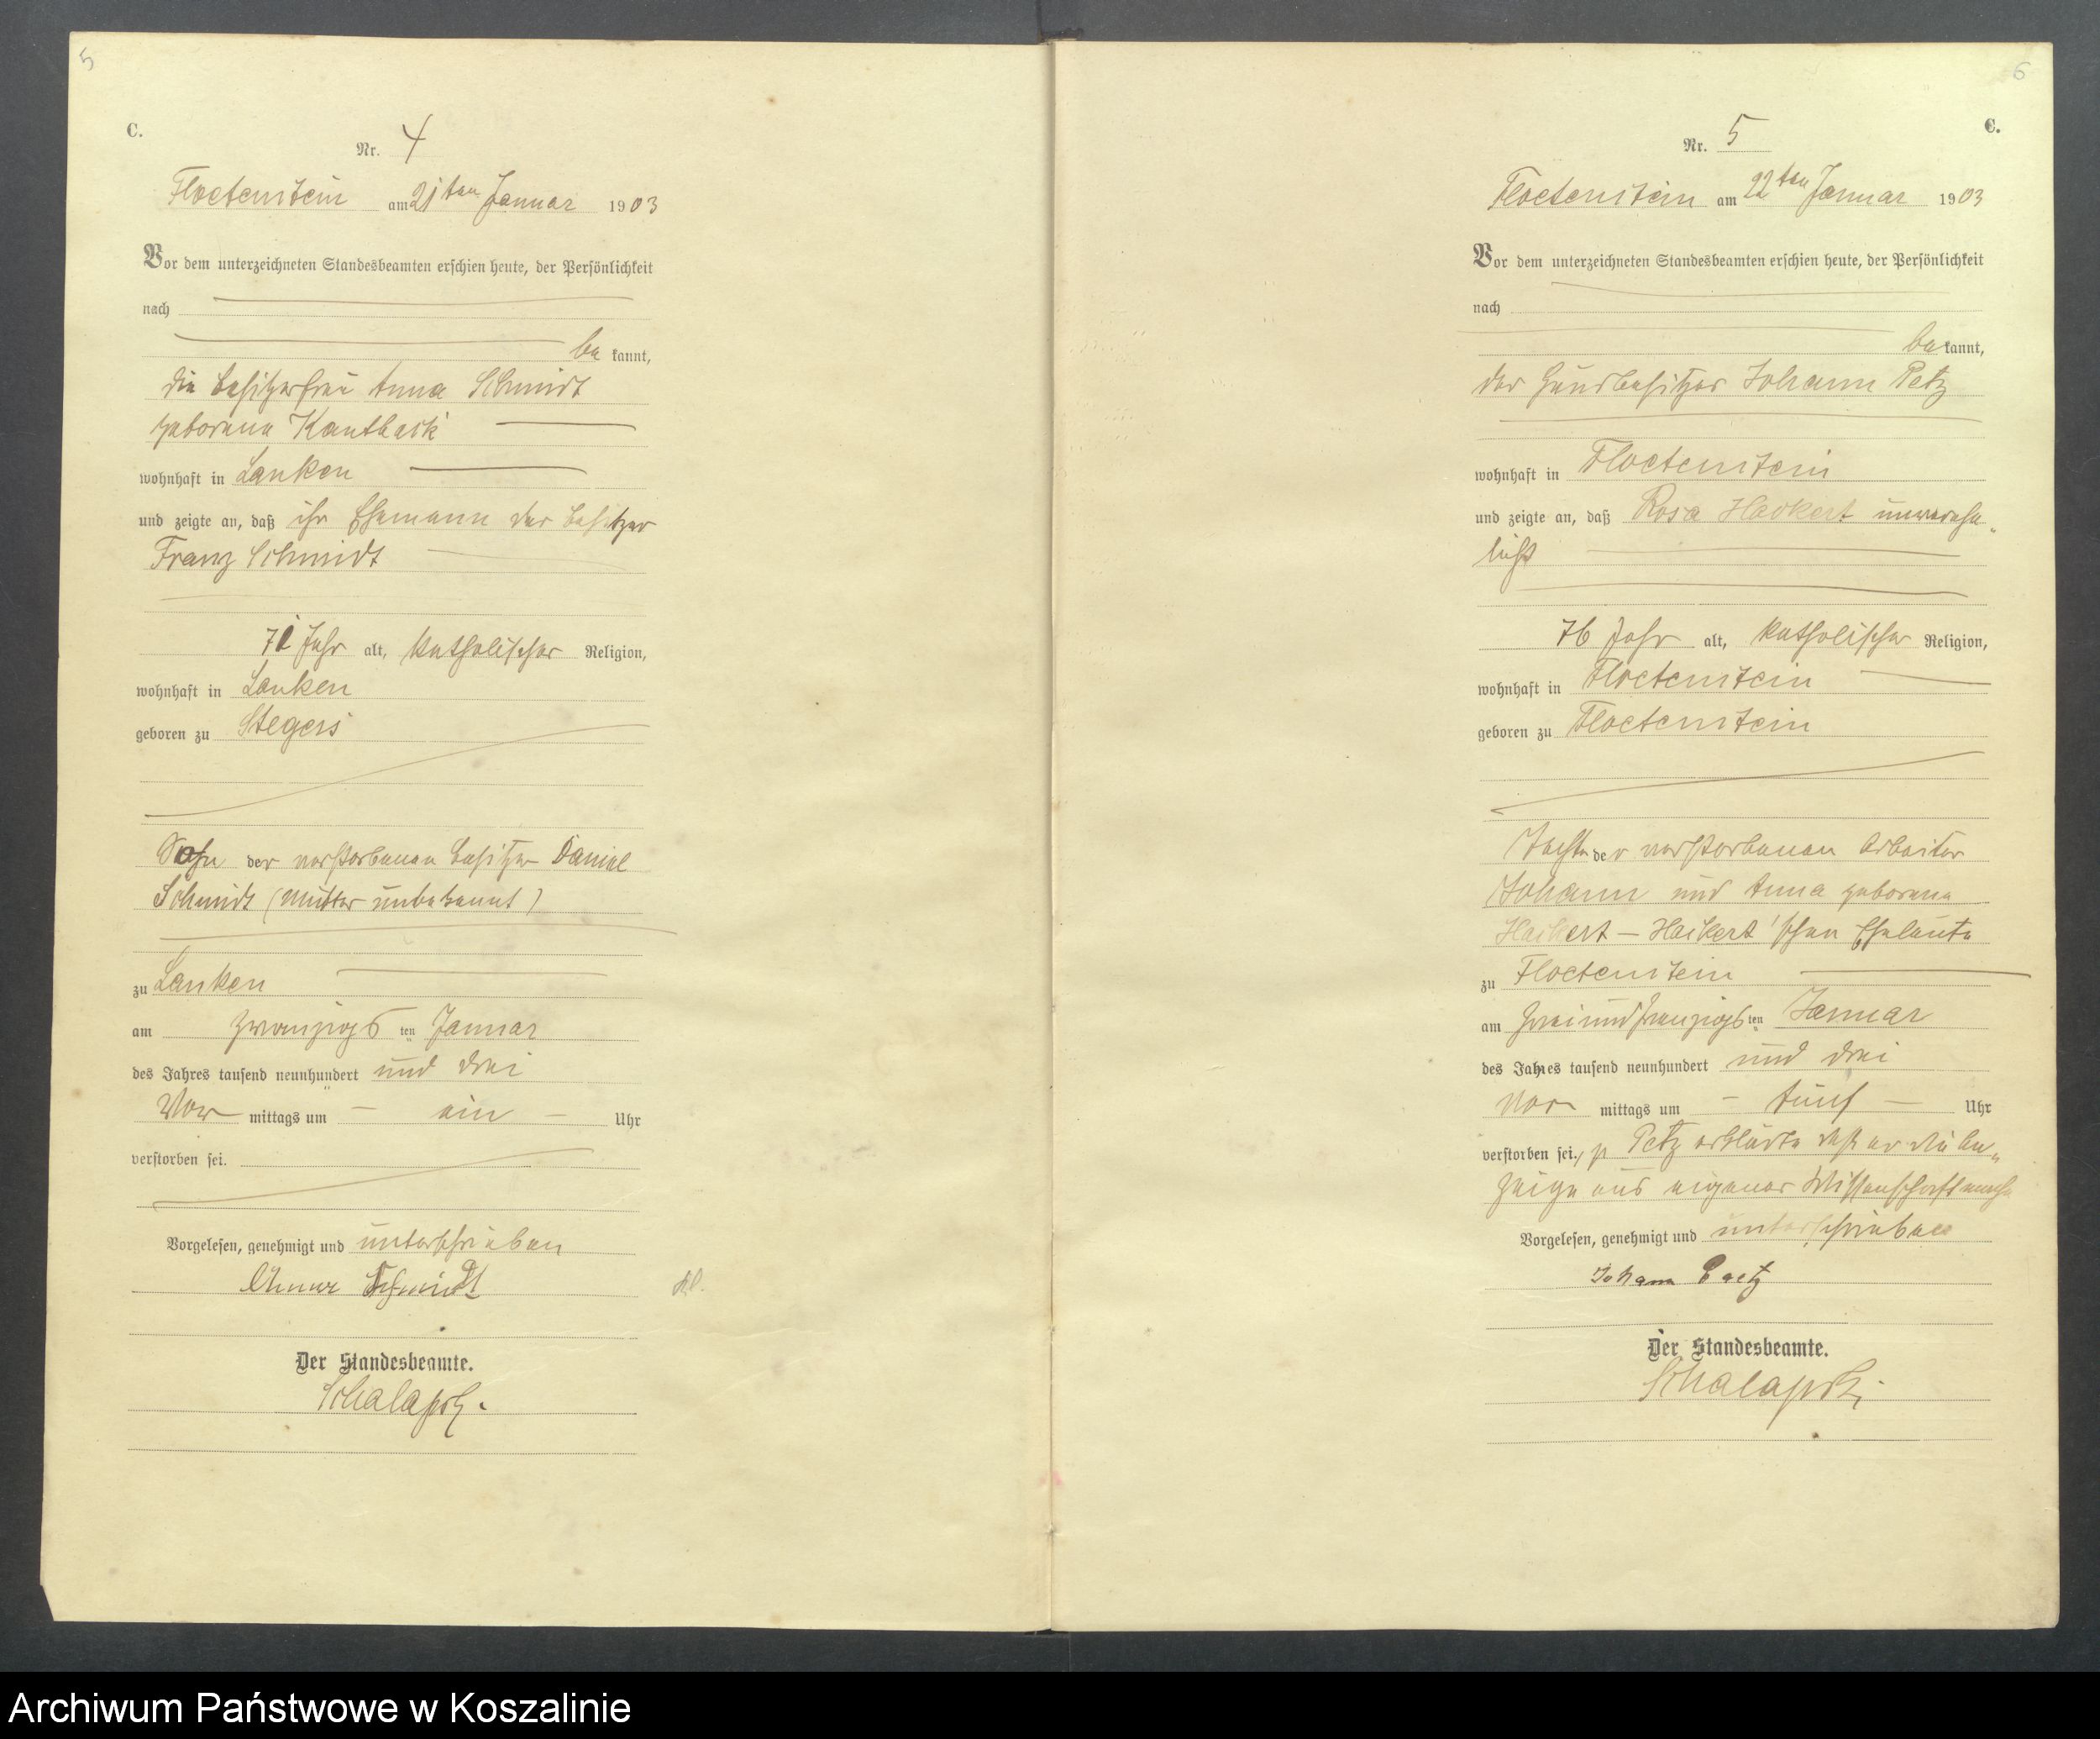 5
C.
Nr. 4
Floetenstein am 21ten Januar 1903
Vor dem unterzeichneten Standesbeamten erschien heute, der Persönlichkeit
nach
be kannt,
die Besitzerfrau Anna Schmidt
geborene
wohnhaft in Lanken
und zeigte an, daß ihr Ehemann der Besitzer
Franz Schmidt
71 Jahr alt, katholischer Religion,
wohnhaft in Lanken
geboren zu Stegers
Sohn der verstorbenen Besitzer Daniel
Schmidt (Mutter unbekannt)
zu Lanken
am zwanzigsten Januar
des Jahres tausend neunhundert und drei
Vor mittags um - ein - Uhr
verstorben sei.
Vorgelesen, genehmigt und unterschrieben
Anna Schmidt
Der Standesbeamte.
Schalapski.
6
C.
Nr. 5
Floetenstein am 22ten Januar 1903
Vor dem unterzeichneten Standesbeamten erschien heute, der Persönlichkeit
nach
be kannt,
der Grundbesitzer Johann Petz
wohnhaft in Floetenstein
und zeigte an, daß Rosa Hackert unverehe„
licht
76 Jahr alt, katholischer Religion,
wohnhaft in Floetenstein
geboren zu Floetenstein
Tochter der verstorbenen Arbeiter
Johann und Anna geborene
Hackert — Hackert'schen Eheleute
zu Floetenstein
am zweiundzwanzigsten Januar
des Jahres tausend neunhundert und drei
Vor mittags um - fünf - Uhr
verstorben sei., p Petz erklärte daß er die An„
zeige aus eigener Wissenschaft mache
Vorgelesen, genehmigt und unterschrieben
Johann Paetz
Der Standesbeamte.
Schalapski.
Archiwum Państwowe w Koszalinie